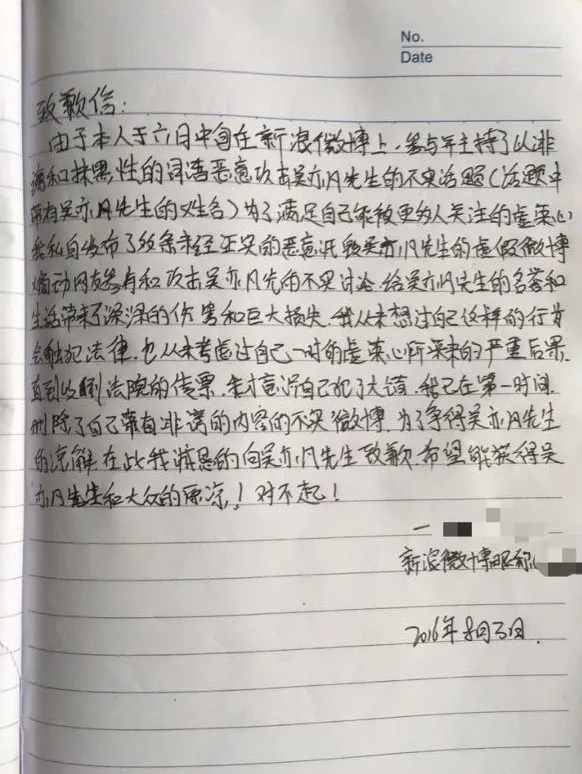 No.
Date
致歉信：
由于本人于六月中旬在新浪微博上，参与并主持了以诽
谤和抹黑性的词语恶意攻击吴亦凡先生的不实话题（话题中
带有吴亦凡先生的姓名）为了满足自己能被更多人关注的虚荣心
我私自发布了数条未经证实的恶意诋毁吴亦凡先生的虚假微博
煽动网友参与和攻击吴亦凡先的不实讨论，给吴亦凡先生的名誉和
生活带来了深深的伤害和巨大损失，我从未想过自己这样的行为
会触犯法律，也从未考虑过自己一时的虚荣心所带来的严重后果，
直到收到法院的传票，我才意识自己犯了大错，我已在第一时间
删除了自己带有诽谤的内容的不实微博，为了争得吴亦凡先生
的谅解，在此我诚恳的向吴亦凡先生致歉，希望能获得吴
亦凡先生和大众的原谅，！对不起！
新浪微博昵称
2016年8月3日．